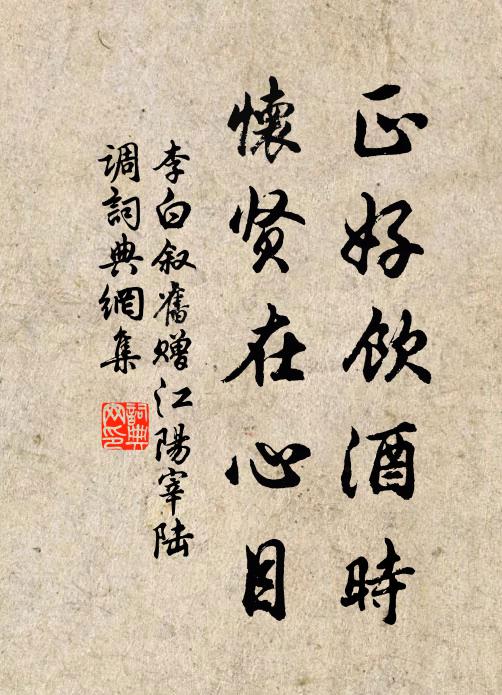 正好飲酒時
懷贤在心目
李白叙舊赠江陽宰陆
调詞典網集
詞典网印